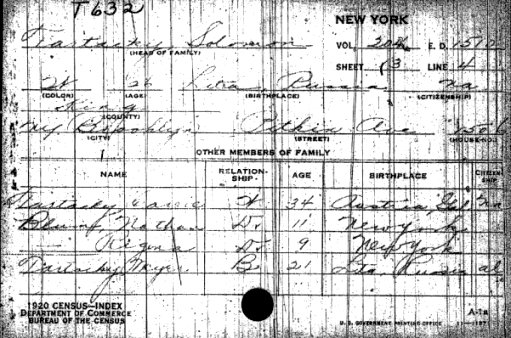 T632
NEW YORK
Tartasky Solomon
(HEAD OF FAMILY)
VOL. E.D.
SHEET 13 LINE 4
W Russia na
(COLOR) (AGE) (BIRTHPLACE) (CITIZENSHIP)
King
(COUNTY)
N.Y. Brooklyn Pitkin Ave 1506
(CITY) (STREET) (HOUSE NO.)
OTHER MEMBERS OF FAMILY
NAME RELATION-SHIP AGE BIRTHPLACE CITIZEN-SHIP
Tartasky W 34 Austria na
Nathan 11 New York
Regina 9 New York
Tartasky Meyer B 21 Russia al
1920 CENSUS—INDEX
DEPARTMENT OF COMMERCE
BUREAU OF THE CENSUS
A-1a
U. S. GOVERNMENT PRINTING OFFICE